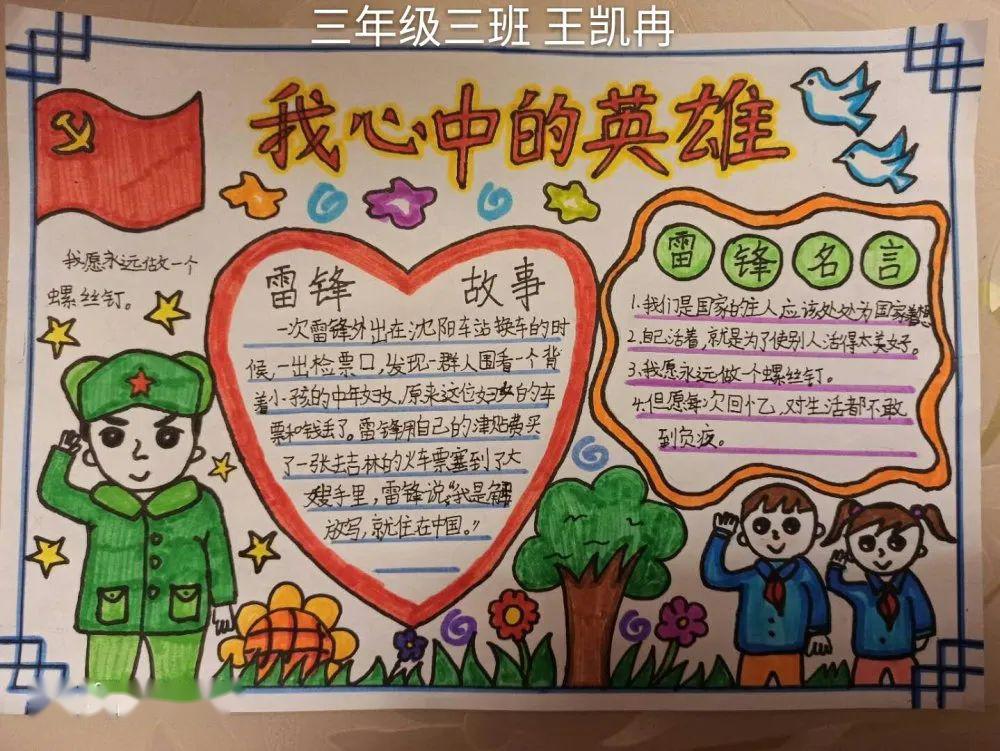 三年级三班 王凯冉
我心中的英雄
我愿永远做一个
螺丝钉。
雷锋 故事
一次雷锋外出在沈阳车站换车的时
候,一出检票口,发现一群人围看一个背
着小孩的中年妇女,原来这位妇女的车
票和钱丢了。雷锋用自己的津贴费买
了一张去吉林的火车票塞到了大
嫂手里,雷锋说"我是解
放写,就住在中国。"
雷锋名言
1.我们是国家的住人应该处处为国家着想
2.自己活着,就是为了使别人活得太美好。
3.我愿永远做一个螺丝钉。
4.但愿每次回忆,对生活都不敢
到负疚。